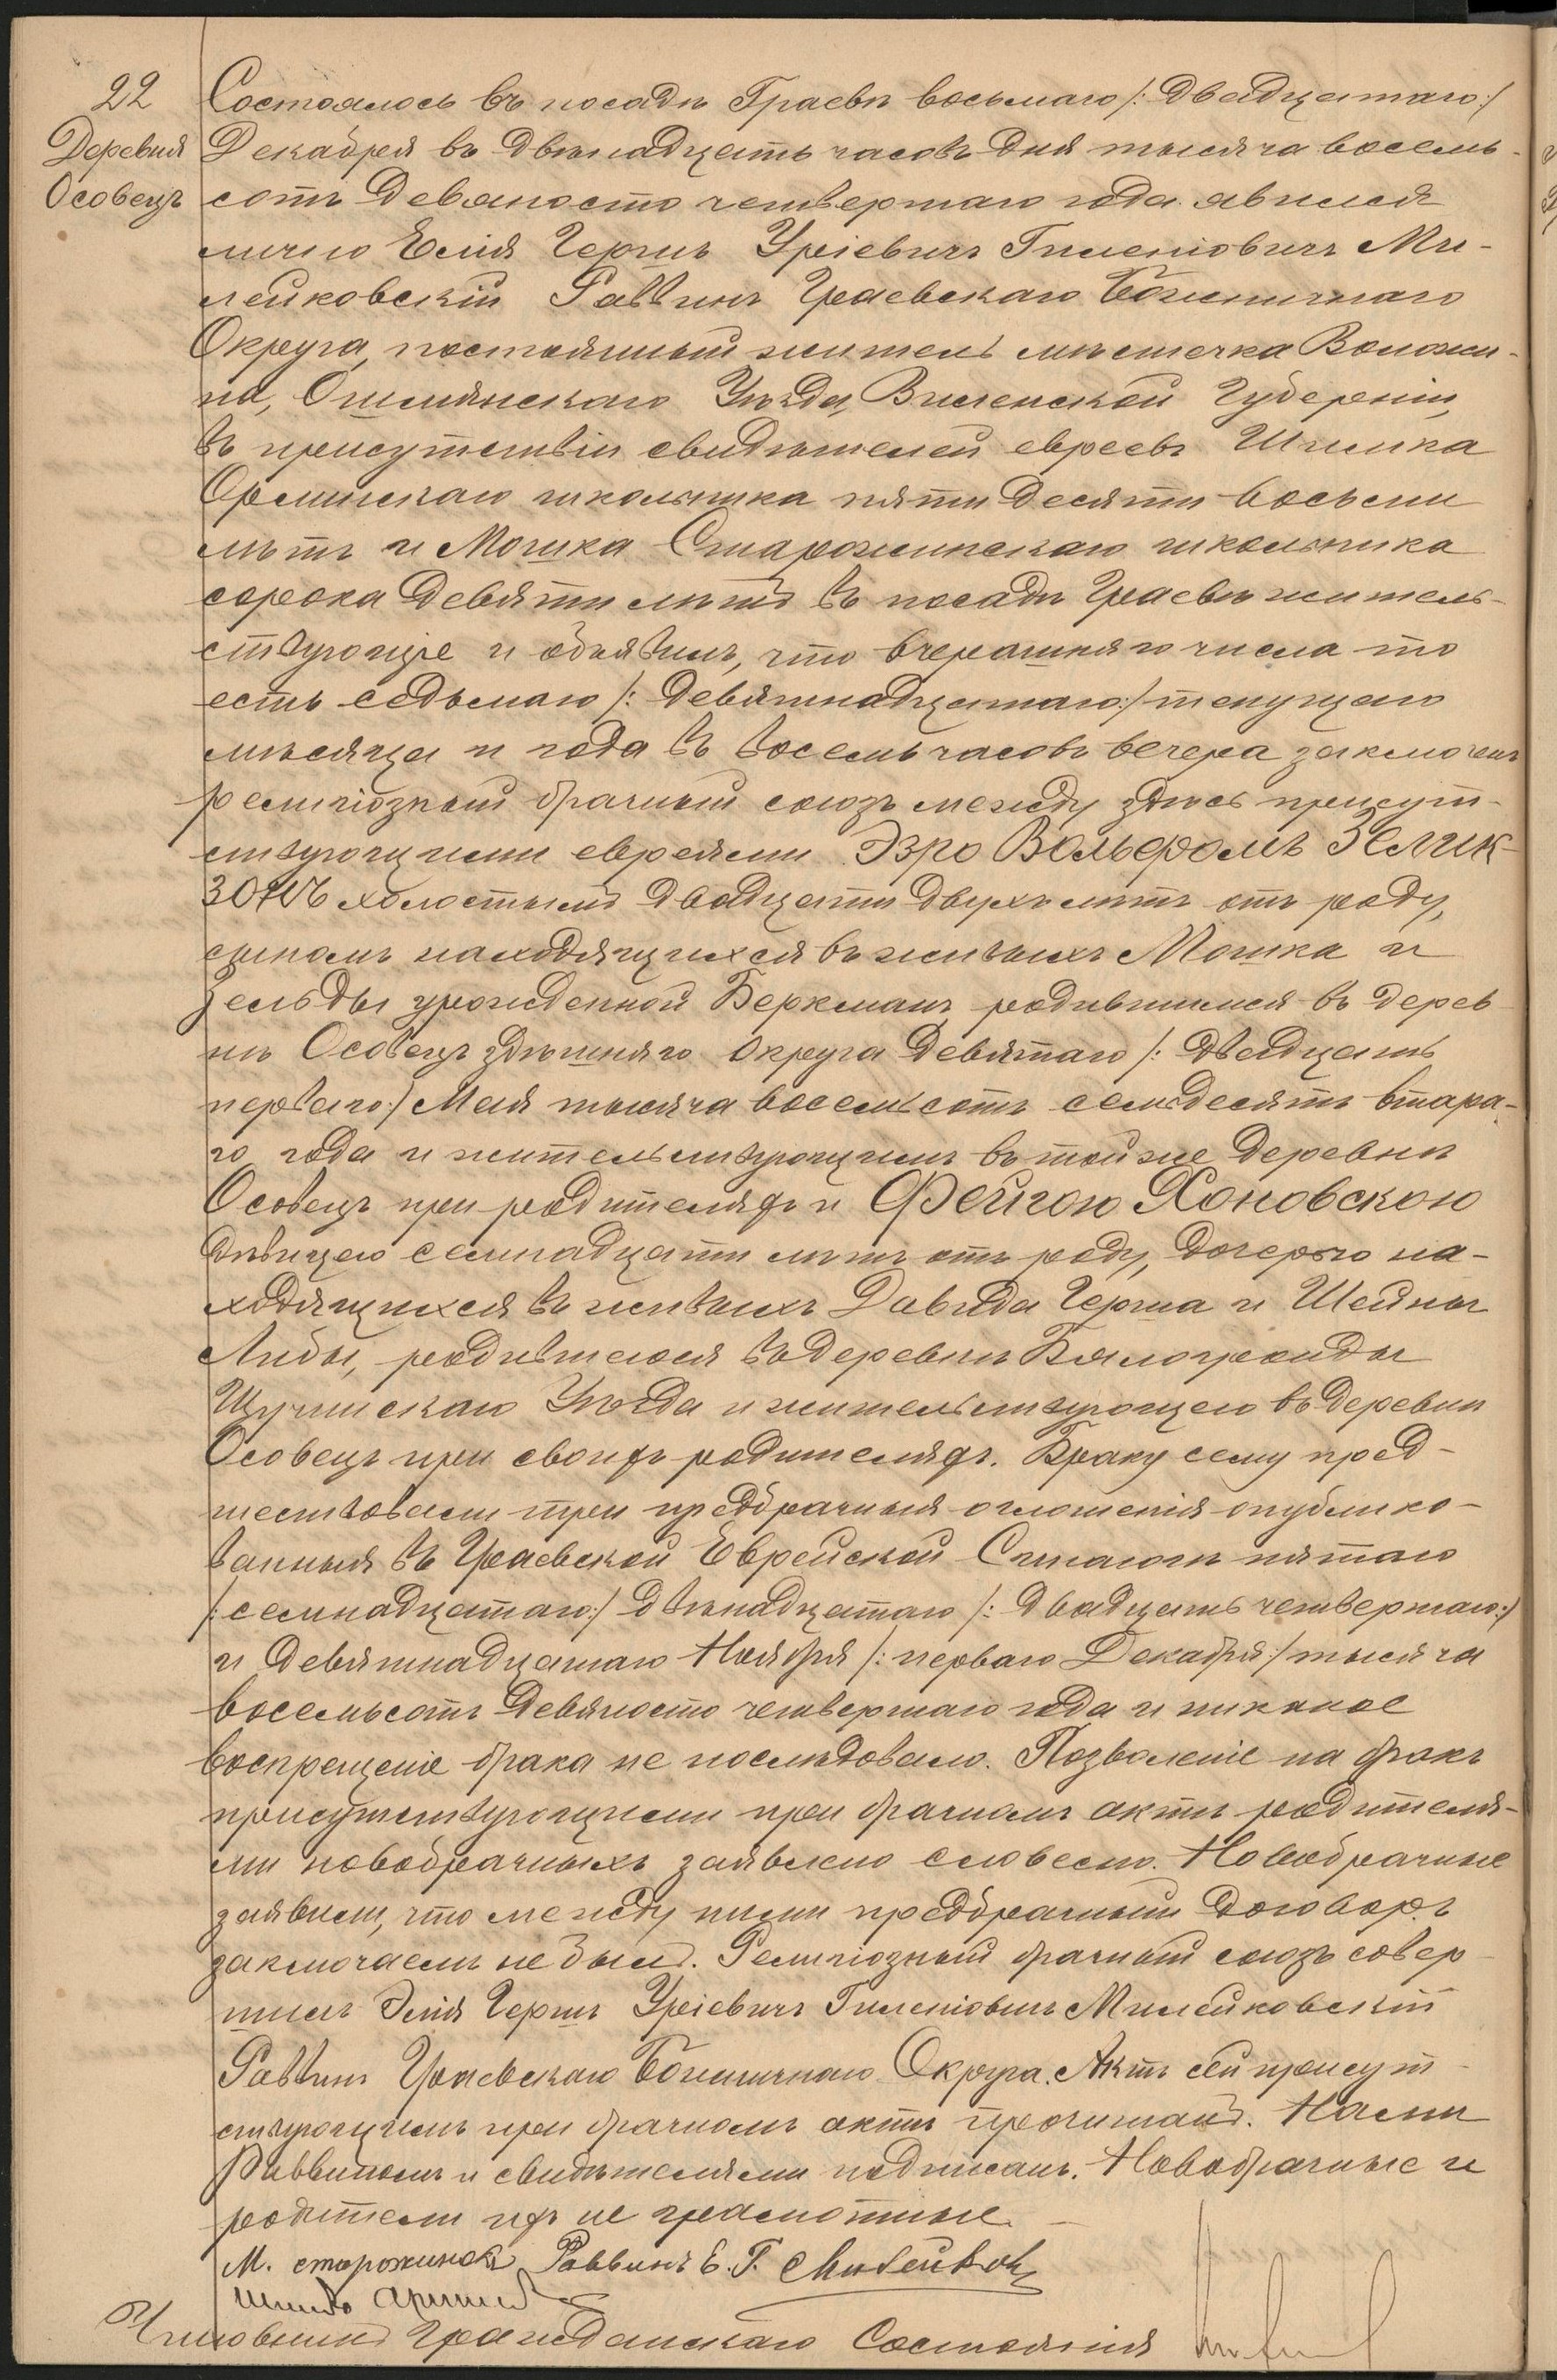 22
Деревня
Осовецъ
Состоялось въ посадѣ Граевѣ восьмаго /:двадцатаго:/
Декабря въ двѣнадцать часовъ дня тысяча восемь-
сотъ девяносто четвертаго года. явился
лично Елія Гершъ Уріевичъ Гиленіовичъ Ми-
лейковскій Раввинъ Граевскаго Божничнаго
Округа, постоянный житель мѣстечка Воложи-
на, Ошмянскаго Уѣзда, Виленской Губерніи,
въ присутствіи свидѣтелей евреевъ Шлиока
Орлинскаго школьника пятидесяти восьми
лѣтъ и Мошка Старожинскаго школьника
сорока девяти лѣтъ въ посадѣ Граевѣ житель-
ствующіе и объявилъ, что вчерашняго числа то
есть седьмаго /:девятнадцатаго:/ текущаго
мѣсяца и года въ восемь часовъ вечера заключенъ
религіозный брачный союзъ между здѣсь присут-
ствующими евреями Эзро Вольфомъ Зелик-
зонъ холостымъ двадцати двухъ лѣтъ отъ роду,
сыномъ находящихся въ живыхъ Мошка и
Зельды урожденной Беркманъ родившимся въ дерев-
нѣ Осовецъ здѣшняго округа девятаго /:двадцать
перваго:/ Мая тысяча восемьсотъ семьдесятъ втара-
го года и жительствующимъ въ той же деревнѣ
Осовецъ при родителяхъ и Фейгою Хоновскою
дѣвицею семнадцати лѣтъ отъ роду, дочерью на-
ходящихся въ живыхъ Давида Герша и Шейны
Либы, родившеюся въ деревнѣ Бялогронды
Щучинскаго Уѣзда и жительствующею въ деревни
Осовецъ при своихъ родителяхъ. Браку сему пред-
шествовали три предбрачныя оглошенія опублико-
ванныя въ Граевской Еврейской Синагогѣ пятаго
/:семнадцатаго:/ двѣнадцатаго /:двадцать четвертаго:/
и девятнадцатаго Ноября /:перваго Декабря:/ тысяча
восемьсотъ девяносто четвертаго года и никакое
воспрещеніе брака не послѣдовало. Позволеніе на бракъ
присутствующими при брачномъ актѣ родителя-
ми новобрачныхъ заявлено словесно. Новобрачные
заявили, что между ними предбрачный договоръ
заключаемъ не былъ. Религіозный брачный союзъ совер-
шилъ Элія Гершъ Уріевичъ Гиленіовичъ Милейковскій
Раввинъ Граевскаго Божничнаго Округа. Актъ сей присут-
ствующимъ при брачномъ актѣ прочитанъ. Нами
Раввиномъ и свидѣтелями подписанъ. Новобрачные и
родители ихъ не грамотные. —
М. сторожинский Раввинъ Е. Г. Милейков
Чиновникъ Гражданскаго Состоянія